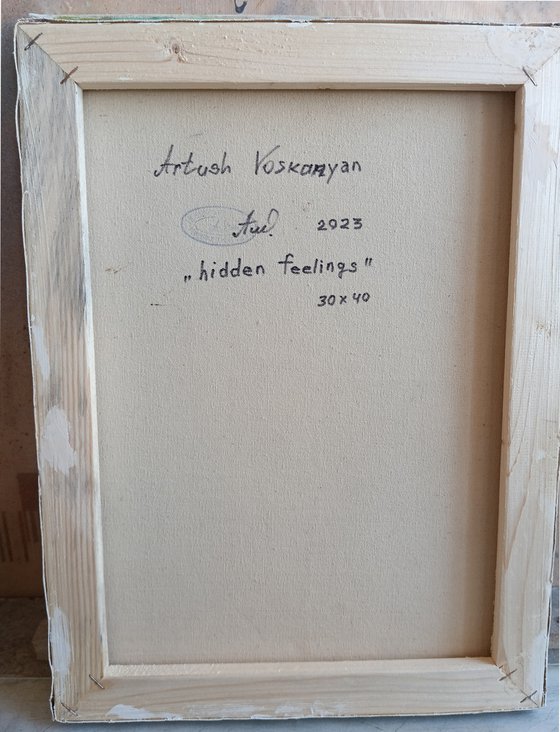 Artush Voskanyan
2023
„hidden feelings"
30x40